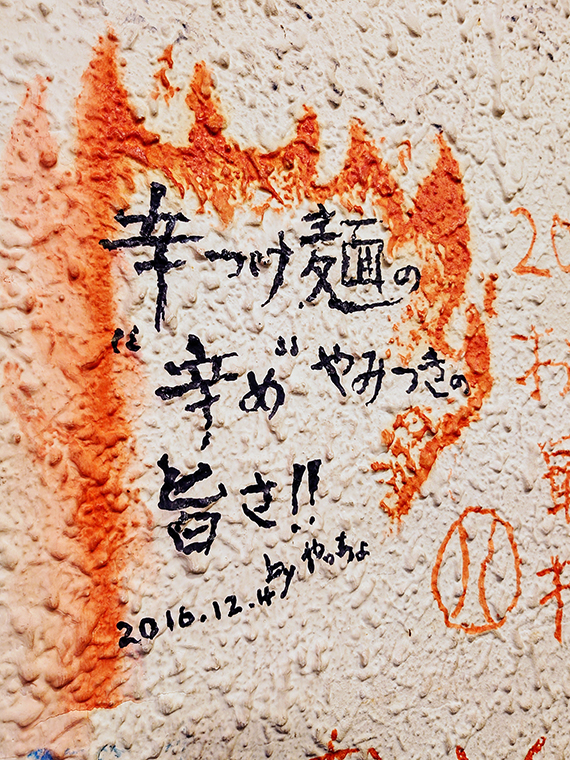 辛つけ麺の
“辛め”やみつきの
旨さ!!
by やっちょ
2016.12.4
20